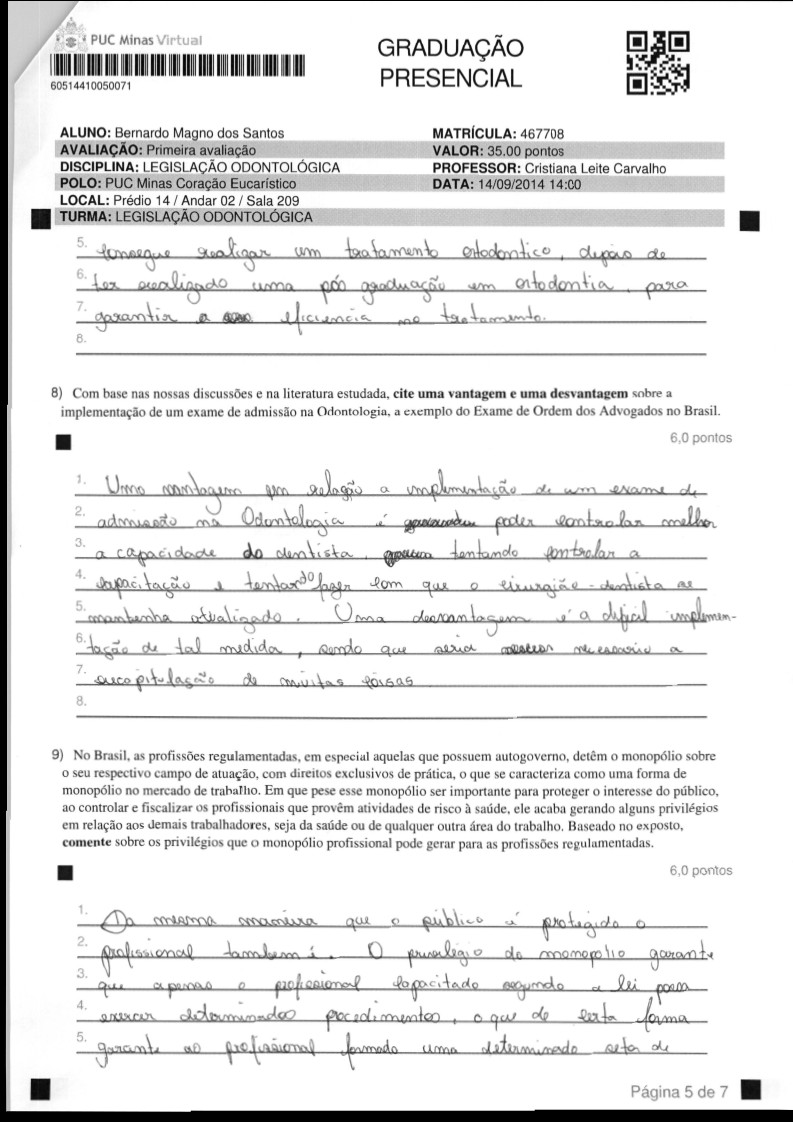 PUC Minas Virtual
60514410050071
GRADUAÇÃO
PRESENCIAL
ALUNO: Bernardo Magno dos Santos
MATRÍCULA: 467708
AVALIAÇÃO: Primeira avaliação
VALOR: 35.00 pontos
DISCIPLINA: LEGISLAÇÃO ODONTOLÓGICA
PROFESSOR: Cristiana Leite Carvalho
POLO: PUC Minas Coração Eucarístico
DATA: 14/09/2014 14:00
LOCAL: Prédio 14 / Andar 02 / Sala 209
TURMA: LEGISLAÇÃO ODONTOLÓGICA
5. consegue realizar um tratamento ortodontico, depois de
6. ter realizado uma pós graduação em ortodontia, para
7. garantir a eficiencia no tratamento.
8.
8) Com base nas nossas discussões e na literatura estudada, cite uma vantagem e uma desvantagem sobre a
implementação de um exame de admissão na Odontologia, a exemplo do Exame de Ordem dos Advogados no Brasil.
6,0 pontos
1. Uma vantagem em relação a implementação de um exame de
2. admissão na Odontologia é poder controlar melhor
3. a capacidade do dentista, tentando controlar a
4. capacitação e tentando fazer com que o cirurgião-dentista se
5. mantenha atualizado. Uma desvantagem é a dificil implemen-
6. tação de tal medida, sendo que seria necessario a
7. de muitas coisas
8.
9) No Brasil, as profissões regulamentadas, em especial aquelas que possuem autogoverno, detêm o monopólio sobre
o seu respectivo campo de atuação, com direitos exclusivos de prática, o que se caracteriza como uma forma de
monopólio no mercado de trabalho. Em que pese esse monopólio ser importante para proteger o interesse do público,
ao controlar e fiscalizar os profissionais que provêm atividades de risco à saúde, ele acaba gerando alguns privilégios
em relação aos demais trabalhadores, seja da saúde ou de qualquer outra área do trabalho. Baseado no exposto,
comente sobre os privilégios que o monopólio profissional pode gerar para as profissões regulamentadas.
6,0 pontos
1. Da mesma maneira que o público é protegido o
2. profissional tambem é. O privilégio do monopolio garante
3. que apenas o profissional capacitado segundo a lei possa
4. exercer determinados procedimentos, o que de certa forma
5. garante ao profissional formado uma determinado setor de
Página 5 de 7